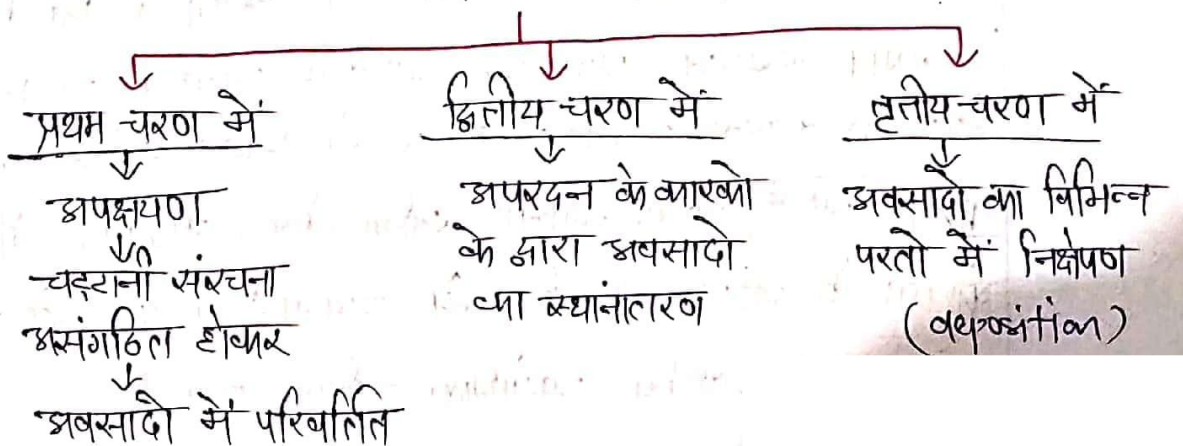 प्रथम चरण में
अपक्षयण
चट्टानी संरचना
असंगठित होकर
अवसादो में परिवर्तित
द्वितीय चरण में
अपरदन के कारको
के द्वारा अवसादो
का स्थांनातरण
तृतीय चरण में
अवसादो का विभिन्न
परतो में निक्षेपण
(deposition)